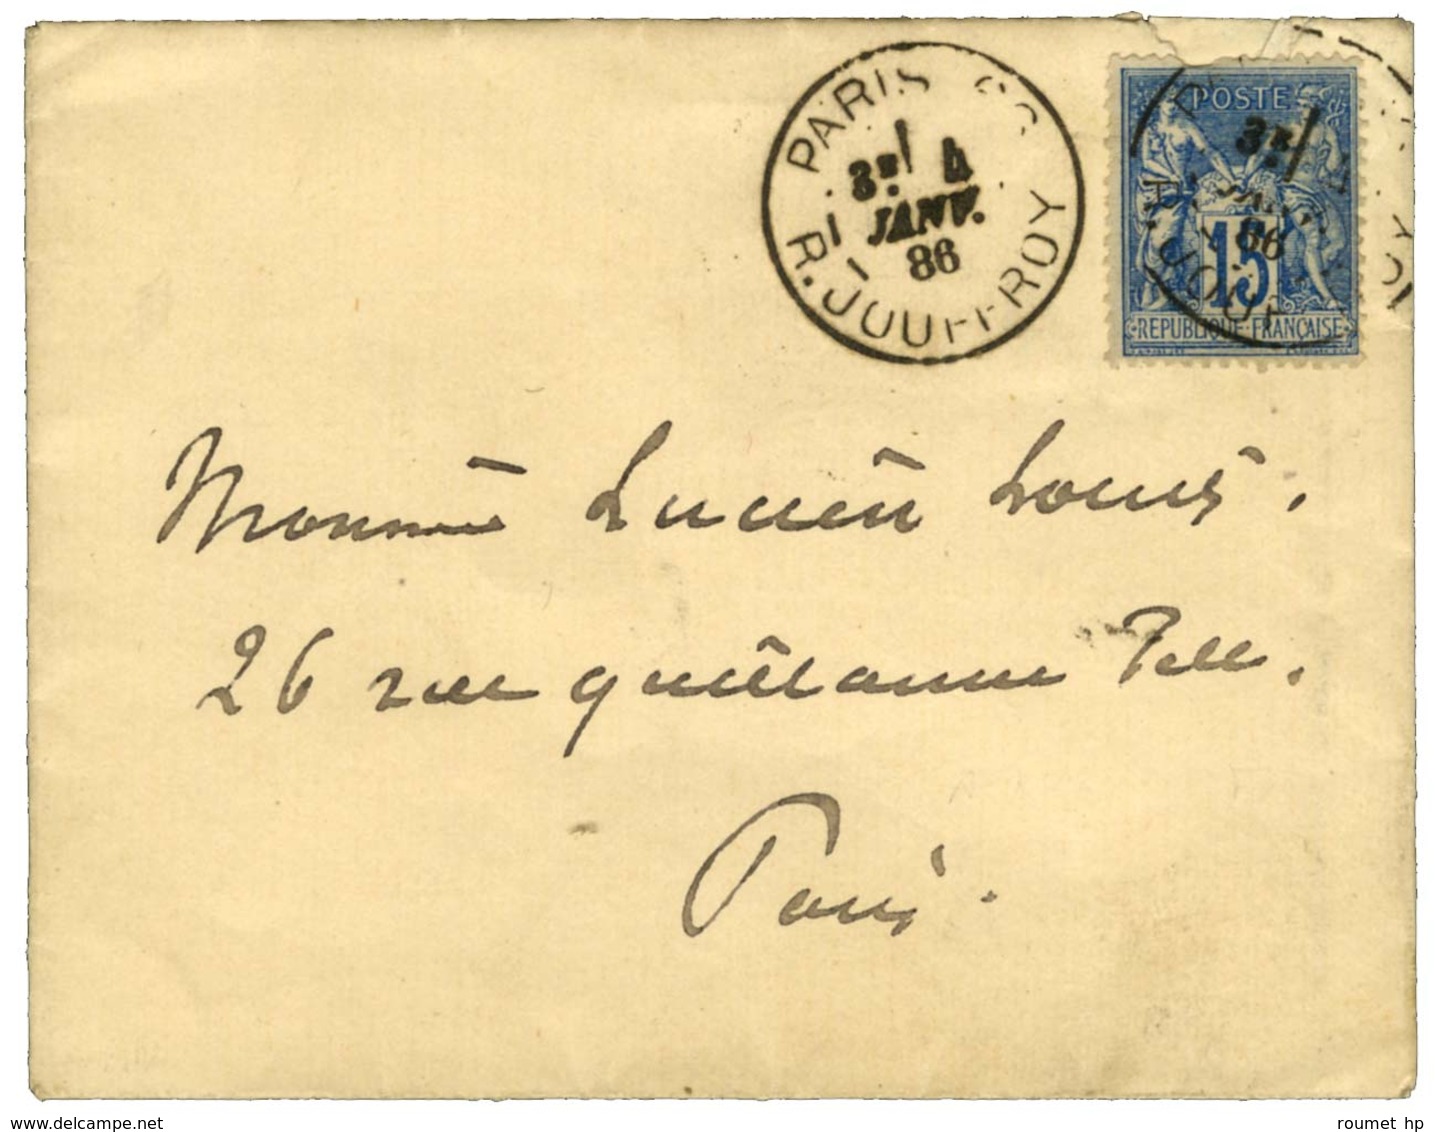 PARIS
3E 4
JANV.
86
R. JOUFFROY
POSTE
3E
86
15
JOUF
REPUBLIQUE FRANÇAISE
Monsieur Lucien Louis.
26 rue Guillaume Tell.
Paris.
www.delcampe.net
roumet hp